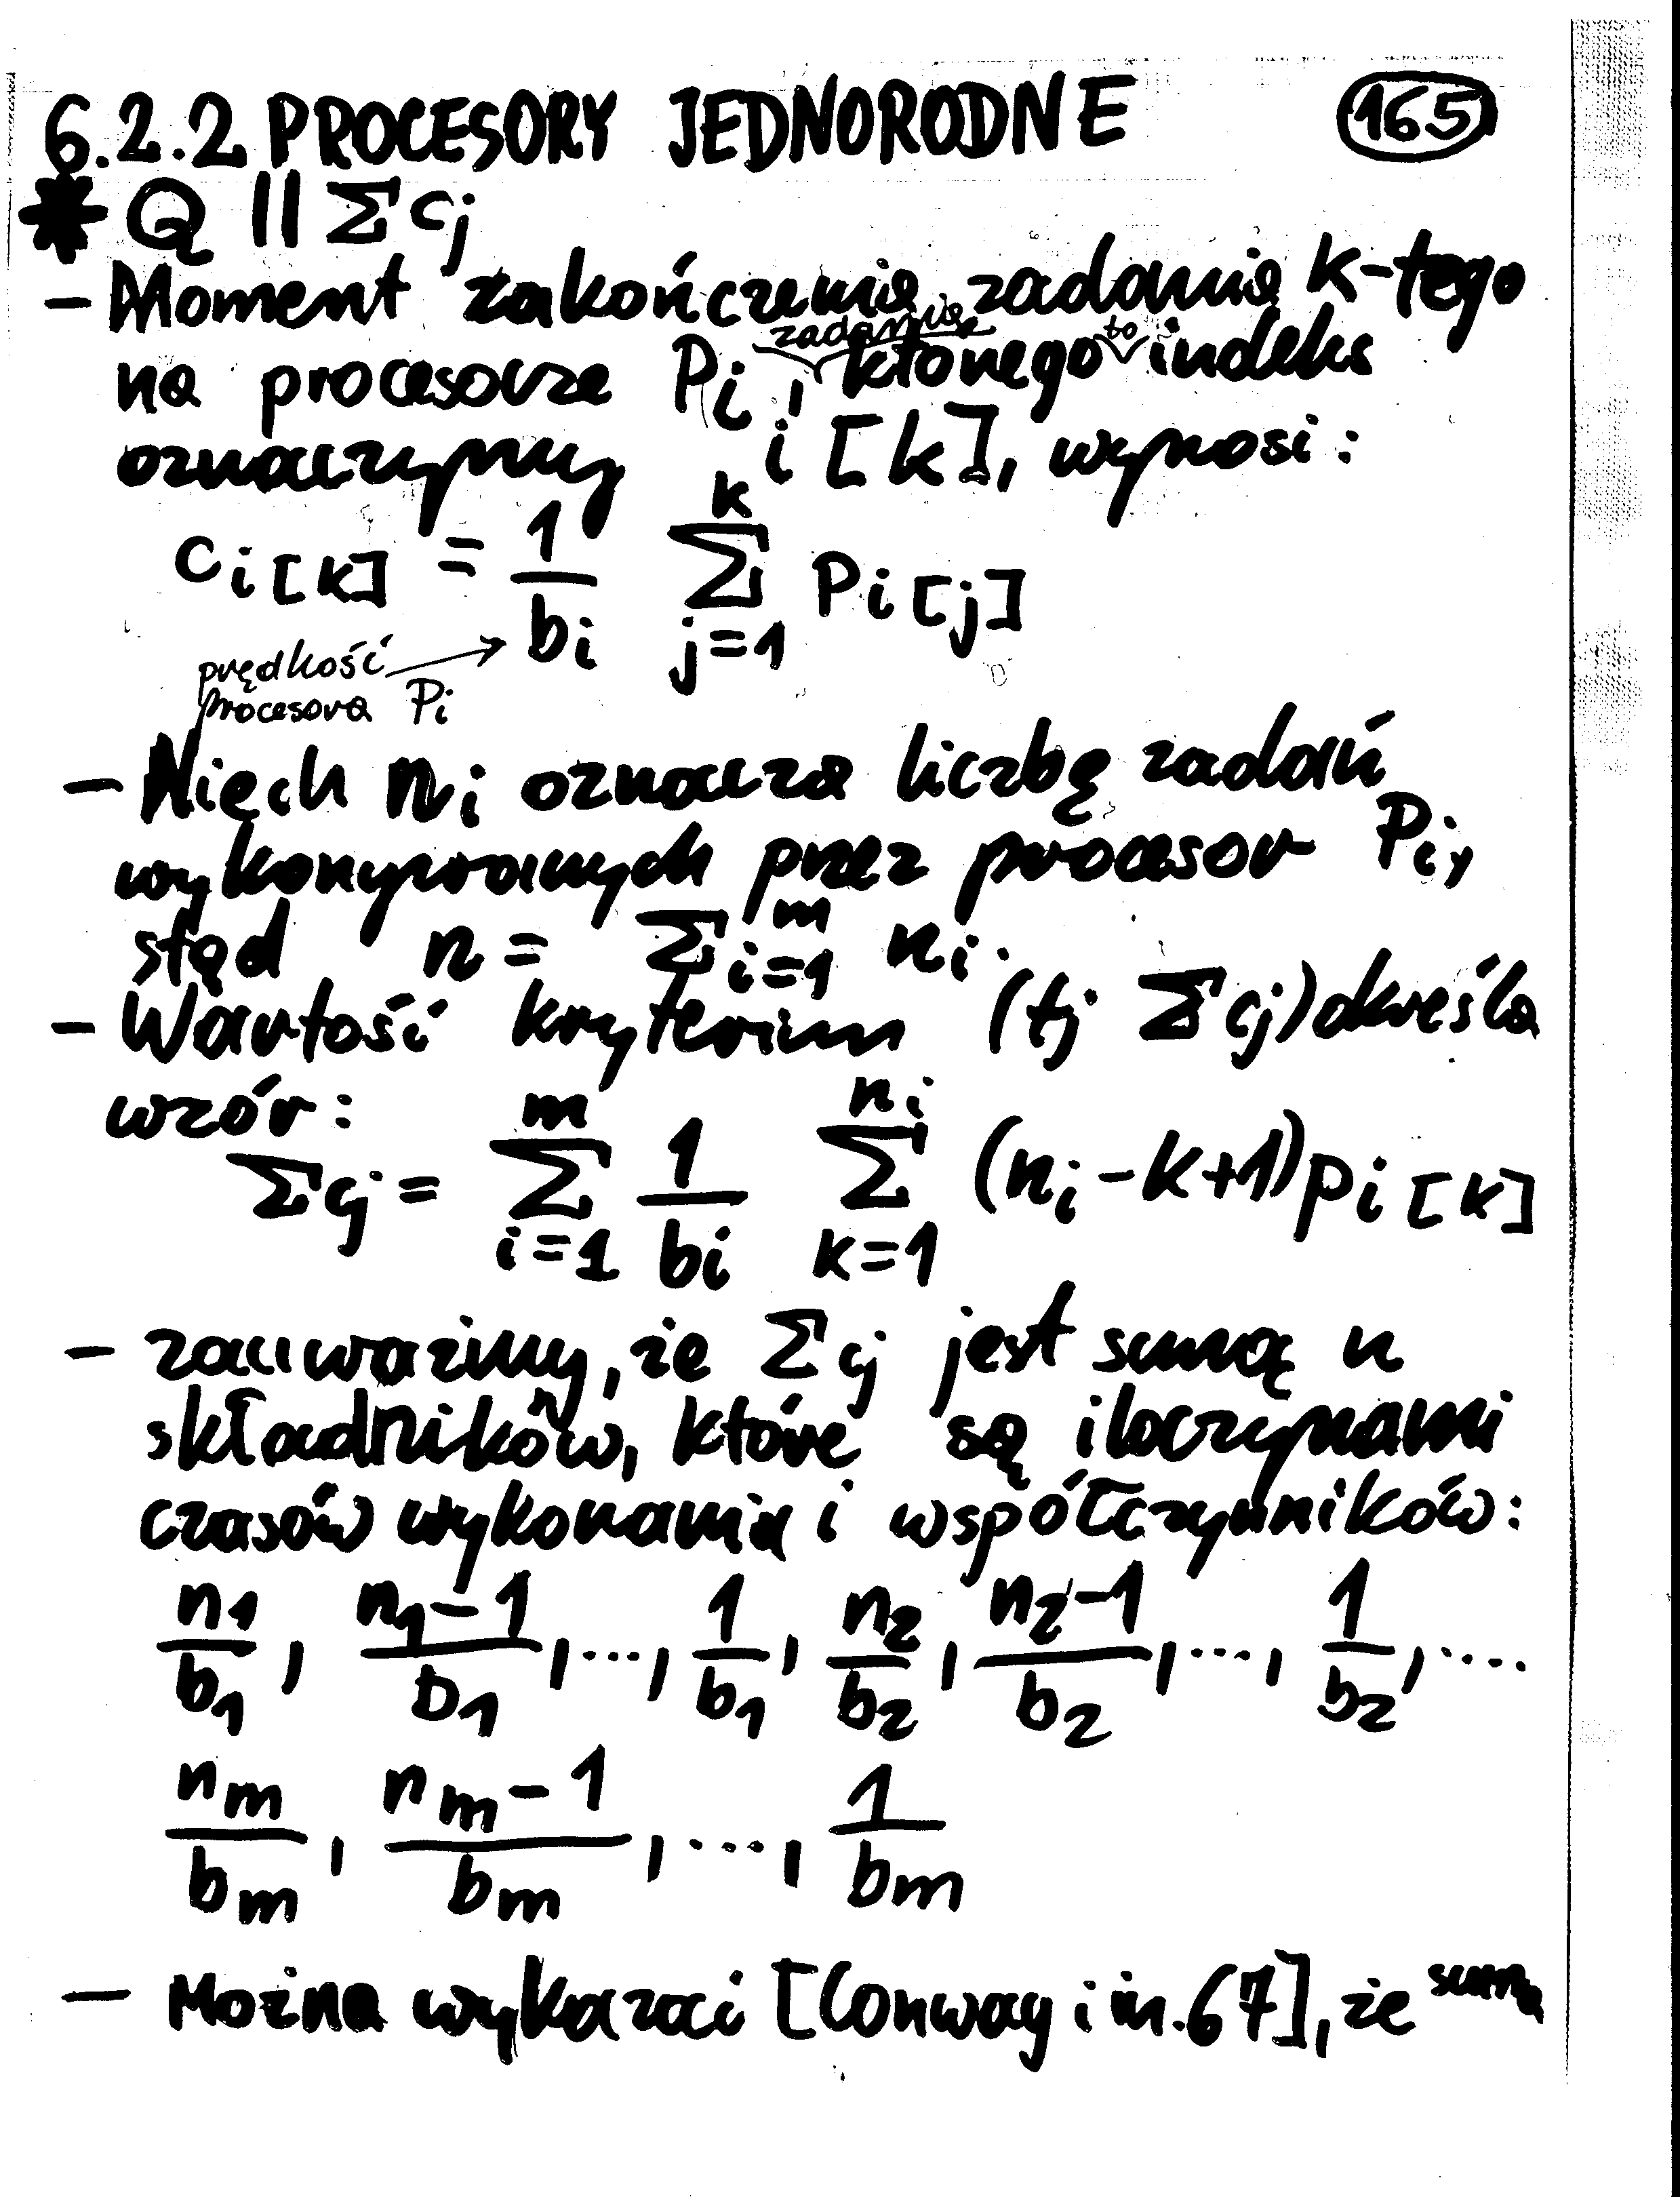 6.2.2 PROCESORY JEDNORODNE 165
* Q || Σ cj
- Moment zakończenia zadania k-tego
na procesorze Pi, zadania którego to indeks
oznaczymy i[k], wynosi:
c i[k] = 1/bi Σ j=1 k p i[j]
prędkość
procesora Pi
- Niech ni oznacza liczbę zadań
wykonywanych przez procesor Pi,
stąd n = Σ i=1 m ni.
- Wartość kryterium (tj Σ cj) określa
wzór:
Σ cj = Σ i=1 m 1/bi Σ k=1 ni (ni-k+1) p i[k]
- zauważmy, że Σ cj jest sumą n
składników, które są iloczynami
czasów wykonania i współczynników:
n1/b1, n1-1/b1, ..., 1/b1, n2/b2, n2-1/b2, ..., 1/b2, ....
nm/bm, nm-1/bm, ..., 1/bm
- Można wykazać [Conway i in. 67], że suma